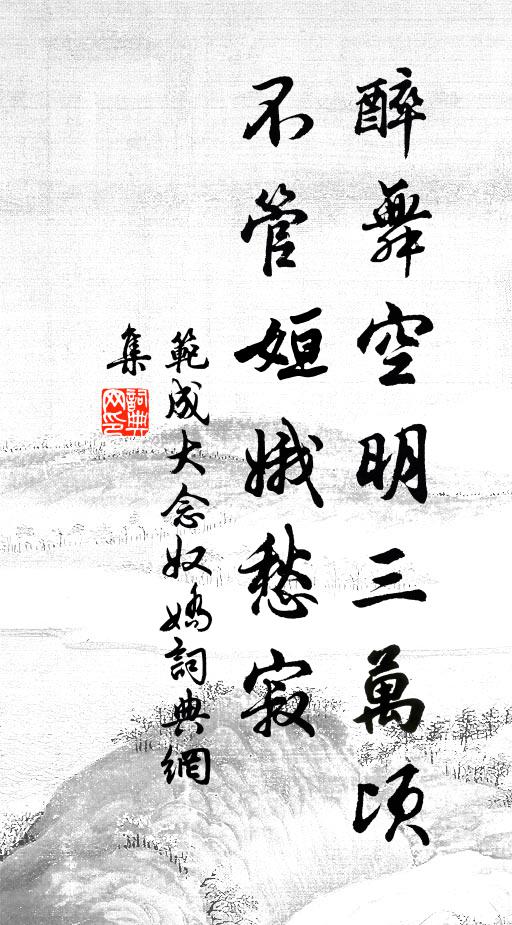 醉舞空明三萬頃
不管姮娥愁寂
範成大念奴嬌詞典網
集
詞典網印